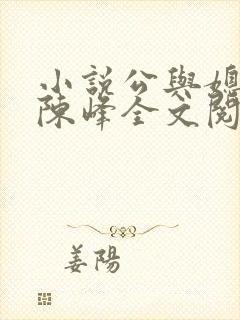 小說公與媳
陳峰全文閱
姜陽